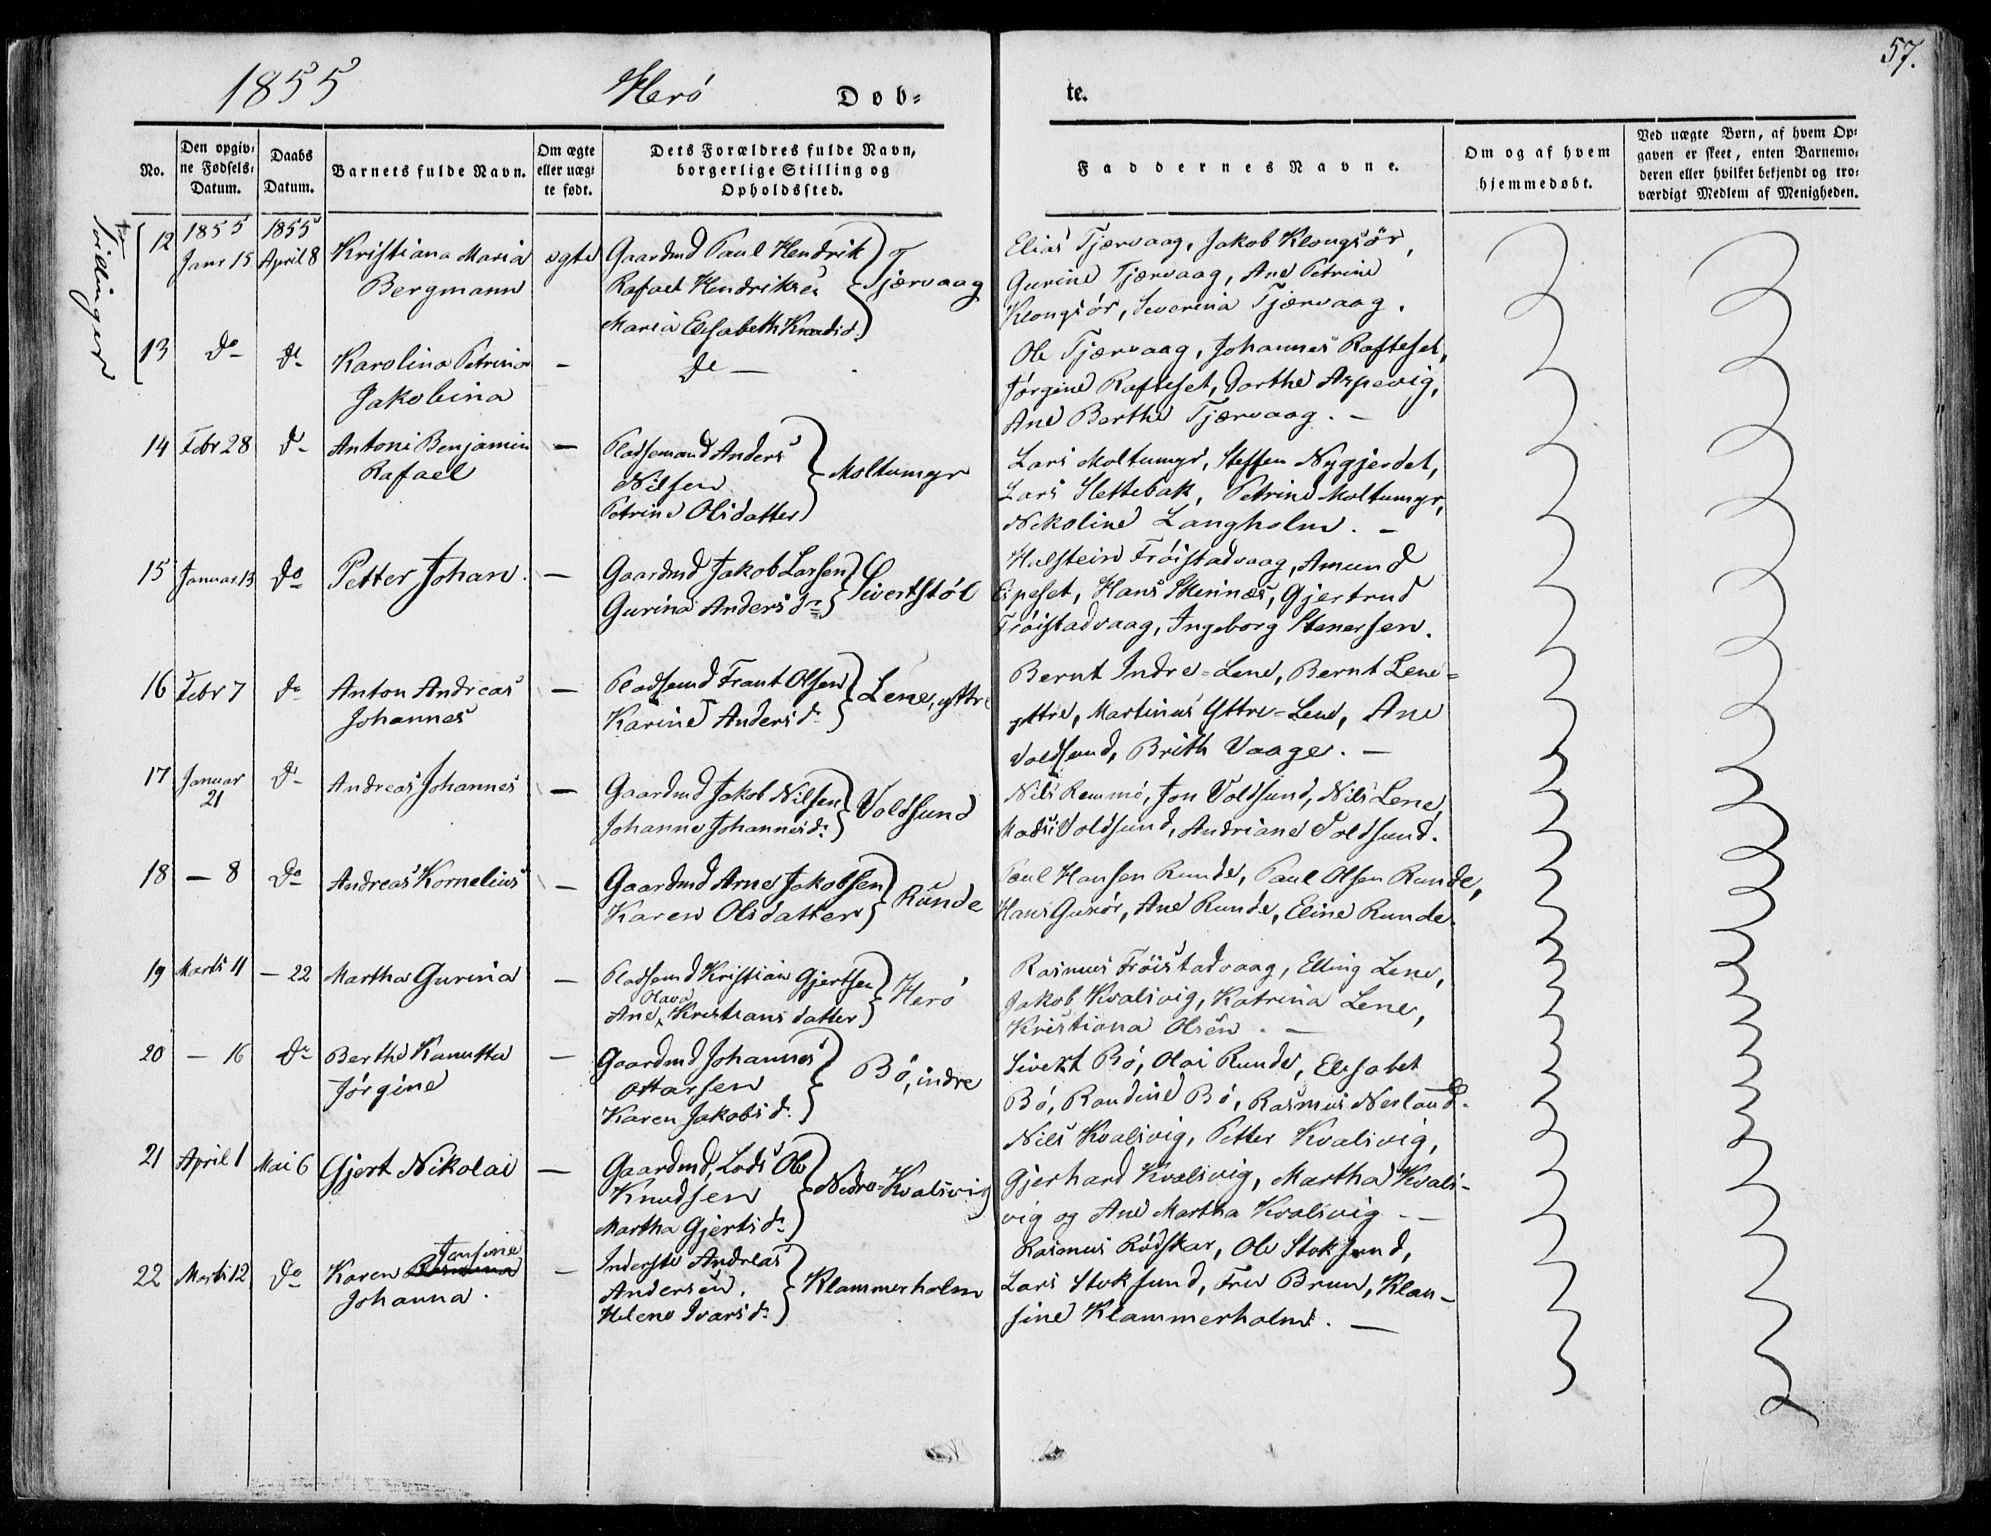 57.
1855 Herö Døb= te.
No.
Den opgiv=
ne Fødsels=
Datum.
Daabs
Datum.
Barnets fulde Navn.
Om ægte
eller uæg=
te født.
Dets Forældres fulde Navn,
borgerlige Stilling og
Opholdssted.
Faddernes Navne.
Om og af hvem
hjemmedøbt.
Ved uægte Børn, af hvem Op=
gaven er skeet, enten Barnemo=
deren eller hvilket bekjendt og tro=
værdigt Medlem af Menigheden.
Tvillinger
1855 1855
12 Janr 15 April 8 Kristiana Maria ægte Gaardmd Paul Hendrik Tjærvaag Elias Tjærvaag, Jakob Klongsör,
Bergmann Rafael Hendriksen Gurine Tjærvaag, Ane Petrine
Maria Elisabeth Knudsd. Klongsör, Severina Tjærvaag.
13 Do De Karolina Petrina — De — Ole Tjærvaag, Johannes Rafteset,
Jakobina Jörgine Rafteset, Dorthe Aspevig,
Ane Berthe Tjærvaag. —
14 Febr 28 De Antoni Benjamin — Pladsemand Anders Moltumyr Lars Moltumyr, Steffen Nygjerdet,
Rafael Nilsen Lars Slettebak, Petrine Moltumyr,
Petrine Olsdatter Nikoline Langholm. —
15 Januar 13 Do Petter Johan. — Gaardmd Jakob Larsen Sivertstöl Halstein Fröistadvaag, Amund
Gurina Andersdr Epeset, Hans Skinnes, Gjertrud
Fröistadvaag, Ingeborg Stenersen.
16 Febr 7 Do Anton Andreas — Pladsemd Frant Olsen Lene, yttre Bernt Indre=Lene, Bernt Lene=
Johannes Karine Andersd. yttre, Martinus Yttre=Lene, Ane
Voldsund, Brith Vaage. —
17 Januar 21 De Andreas Johannes — Gaardmd Jakob Nilsen Voldsund Nils Remmö, Jon Voldsund, Nils Lene
Johanne Johannesd. Mads Voldsund, Andriane Voldsund.
18 — 8 Do Andreas Kornelius — Gaardmd Arne Jakobsen Runde Paul Hansen Runde, Paul Olsen Runde,
Karen Olsdatter Hans Gurör, Ane Runde, Eline Runde.
19 Marts 11 — 22 Martha Gurina — Pladsemd Kristian Gjertsen Herö Rasmus Fröistadvaag, Elling Lene,
Ane Olava Kristiansdatter Jakob Kvalsvig, Katrina Lene,
Kristiana Olsen. —
20 — 16 De Berthe Kanutta — Gaardmd Johannes Bö, indre Sivert Bö, Olai Runde, Elisabet
Jörgine Ottarsen Bö, Randine Bö, Rasmus Nerland.
Karen Jakobsd.
21 April 1 Mai 6 Gjert Nikolai — Gaardmd, Lods Ole Nedre=Kvalsvig Nils Kvalsvig, Petter Kvalsvig,
Knudsen Gjerhard Kvalsvig, Martha Kvals-
Martha Gjertsdr vig og Ane Martha Kvalsvig —
22 Marts 12 Do Karen Jensine — Inderste Andreas Klammerholm Rasmus Rödskar, Ole Stoksund,
Johanna. Andersen. Lars Stoksund, Frue Brun, Klau-
Helene Ivarsd. sine Klammerholm. —